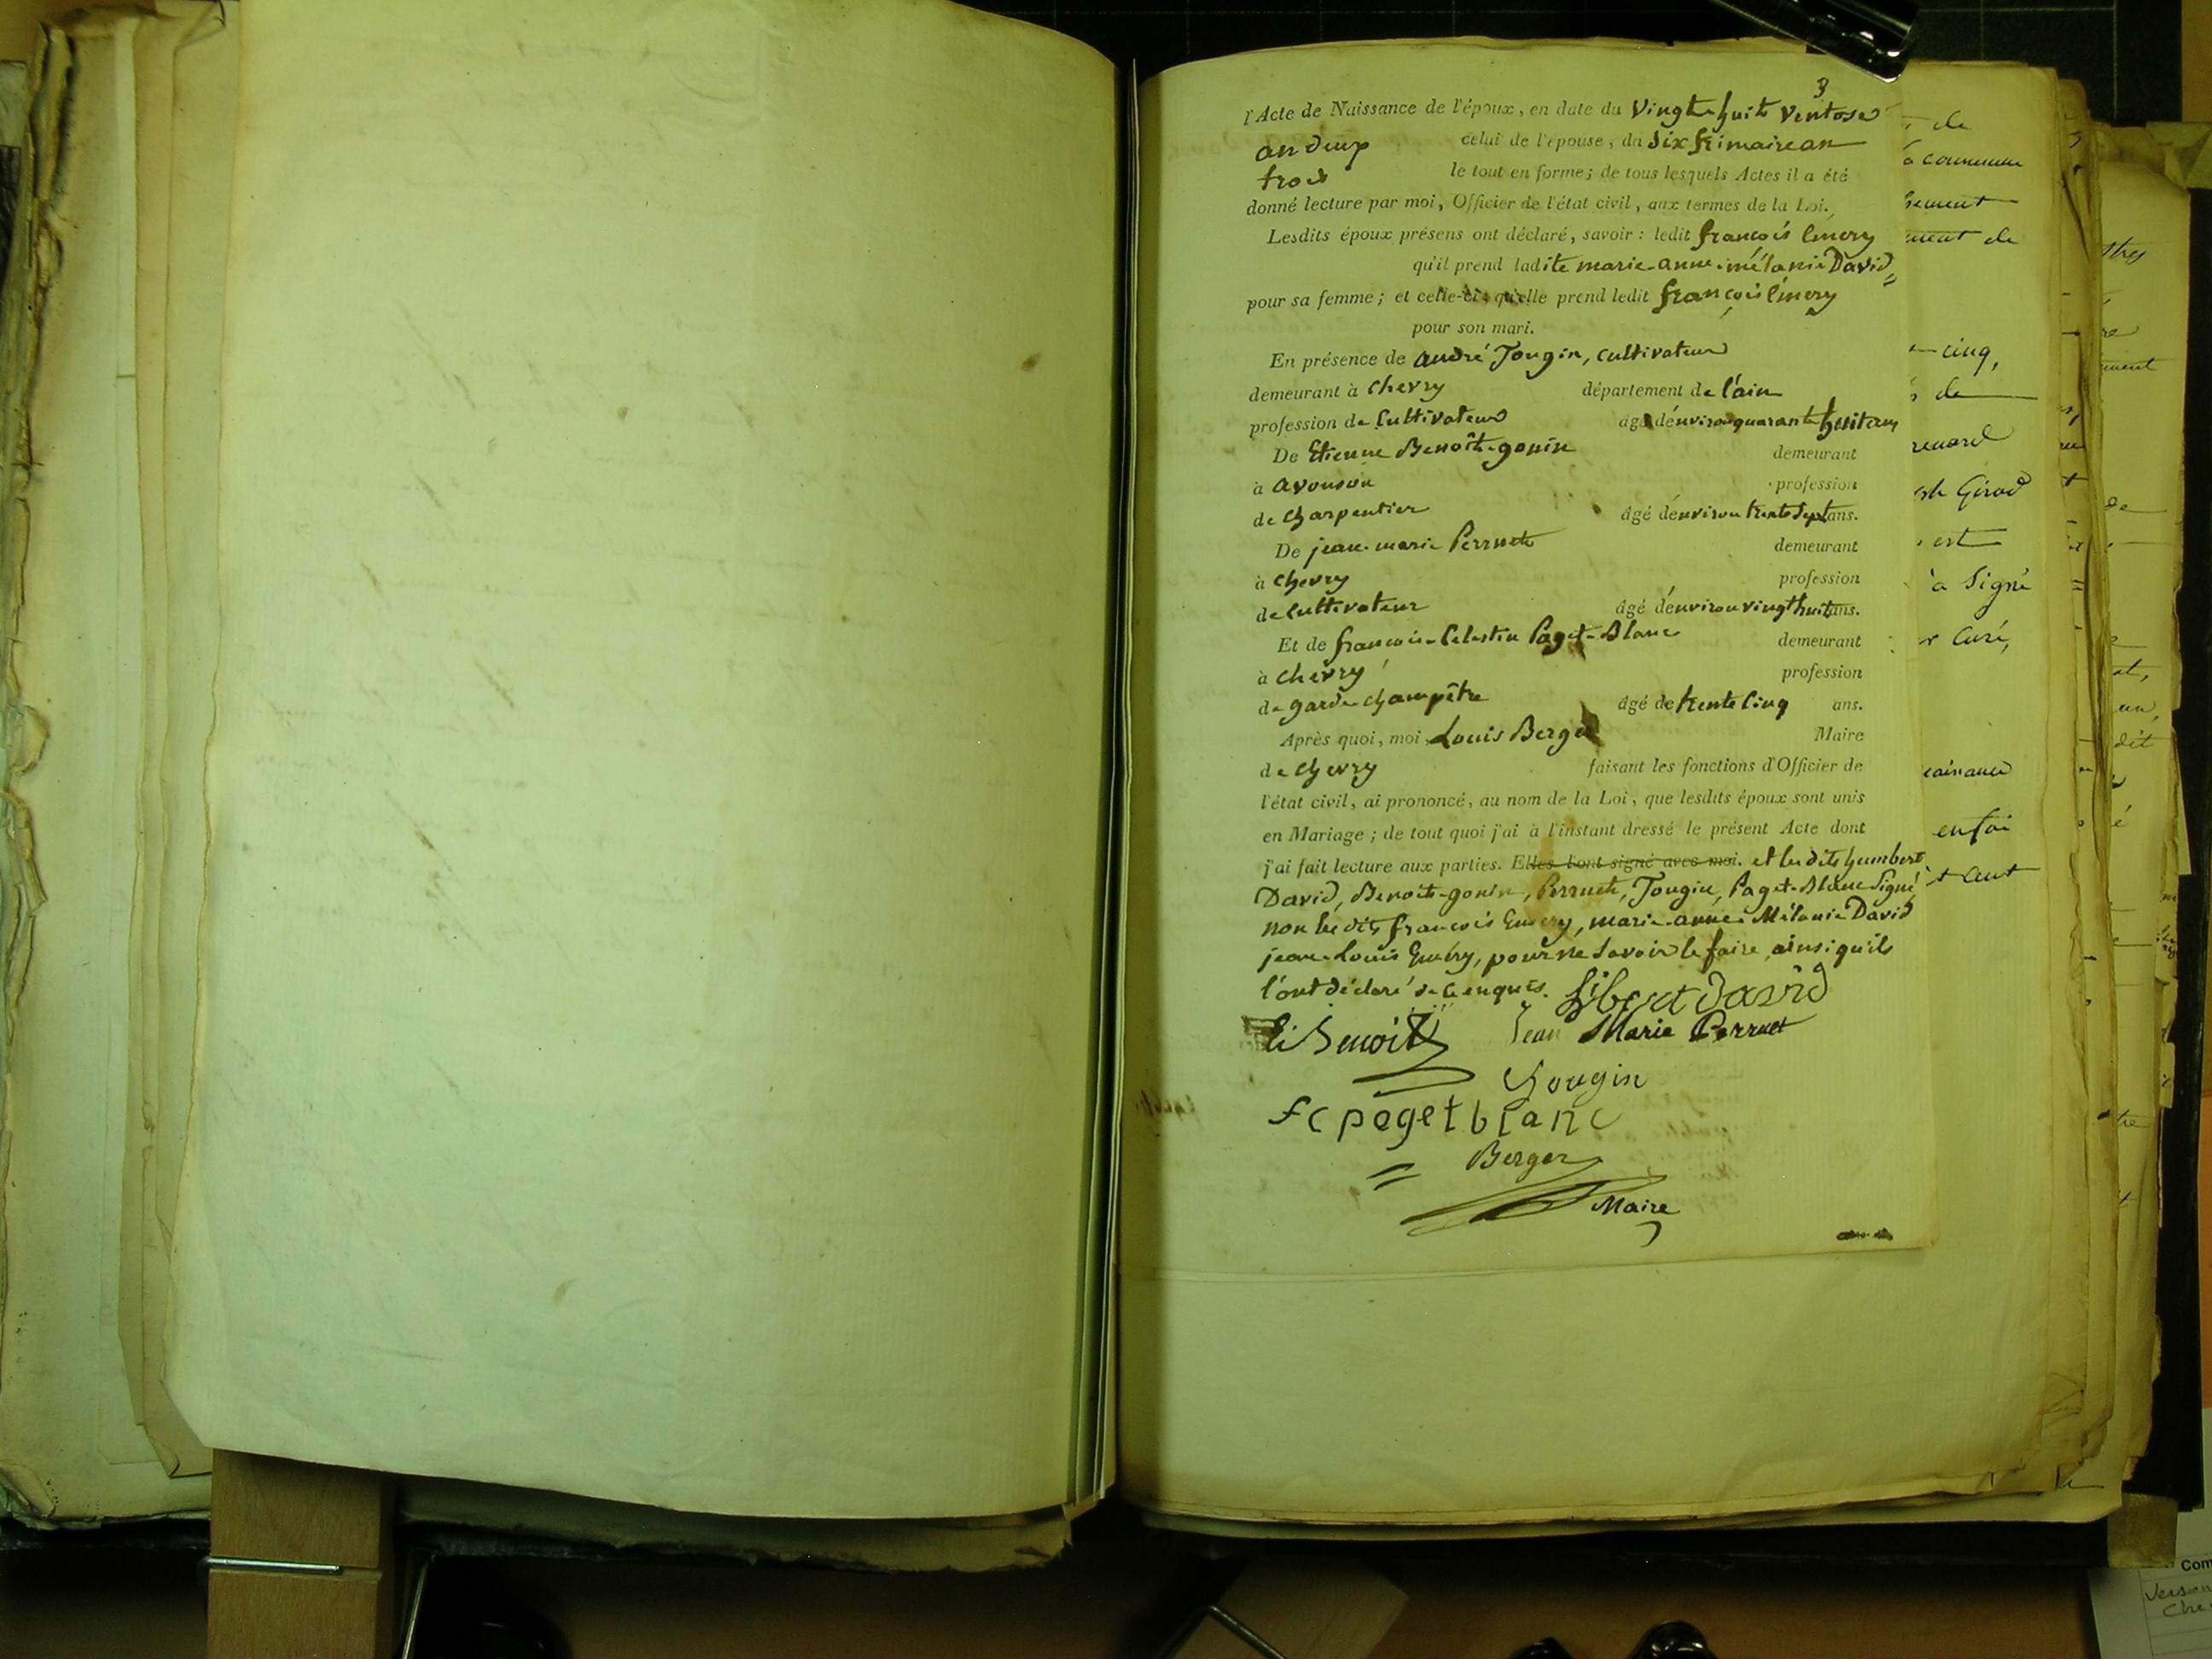 3
l'Acte de Naissance de l'époux, en date du Vingt huit Ventose
an deux celui de l'épouse, du Six frimaire an
trois le tout en forme; de tous lesquels Actes il a été
donné lecture par moi, Officier de l'état civil, aux termes de la Loi.
Lesdits époux présens ont déclaré, savoir : ledit françois Emery
qu'il prend ladite marie-anne-mélanie David
pour sa femme; et celle-ci, qu'elle prend ledit françois Emery
pour son mari.
En présence de andré Tougin, cultivateur
demeurant à Chevry département de l'ain
profession de Cultivateur agé d'environ quarante huit ans
De Etienne Benoît-gonin demeurant
à avouson profession
de charpentier âgé d'environ trente Sept ans.
De jean-marie Perruet demeurant
à Chevry profession
de Cultivateur âgé d'environ vingt huit ans.
Et de françois-Celestin Paget-Blanc demeurant
à Chevry profession
de garde champêtre âgé de trente Cinq ans.
Après quoi, moi, Louis Berger Maire
de Chevry faisant les fonctions d'Officier de
l'état civil, ai prononcé, au nom de la Loi, que lesdits époux sont unis
en Mariage; de tout quoi j'ai à l'instant dressé le présent Acte dont
j'ai fait lecture aux parties. Elles l'ont signé avec moi. et les dits humbert
David, Benoit-gonin, Perruet, Tougin, Paget-Blanc Signé
non les dits françois Emery, marie-anne-Mélanie David
jean-Louis Emery, pour ne Savoir le faire, ainsi qu'ils
l'ont déclaré de ce enquis.
David
Benoit Jean Marie Perruet
Tougin
fc pagetblanc
Berger
Maire
de
à commune
cinq,
de
Girod
est
à Signé
Curé,
en foi